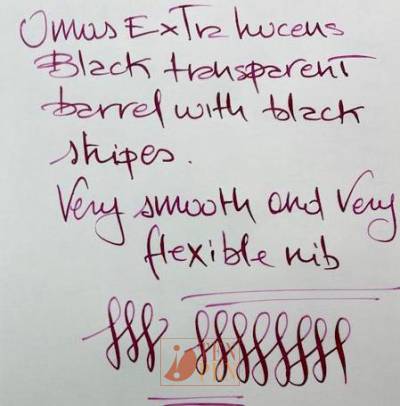 Omas Extra Lucens
Black transparent
barrel with black
stripes.
Very smooth and very
flexible nib